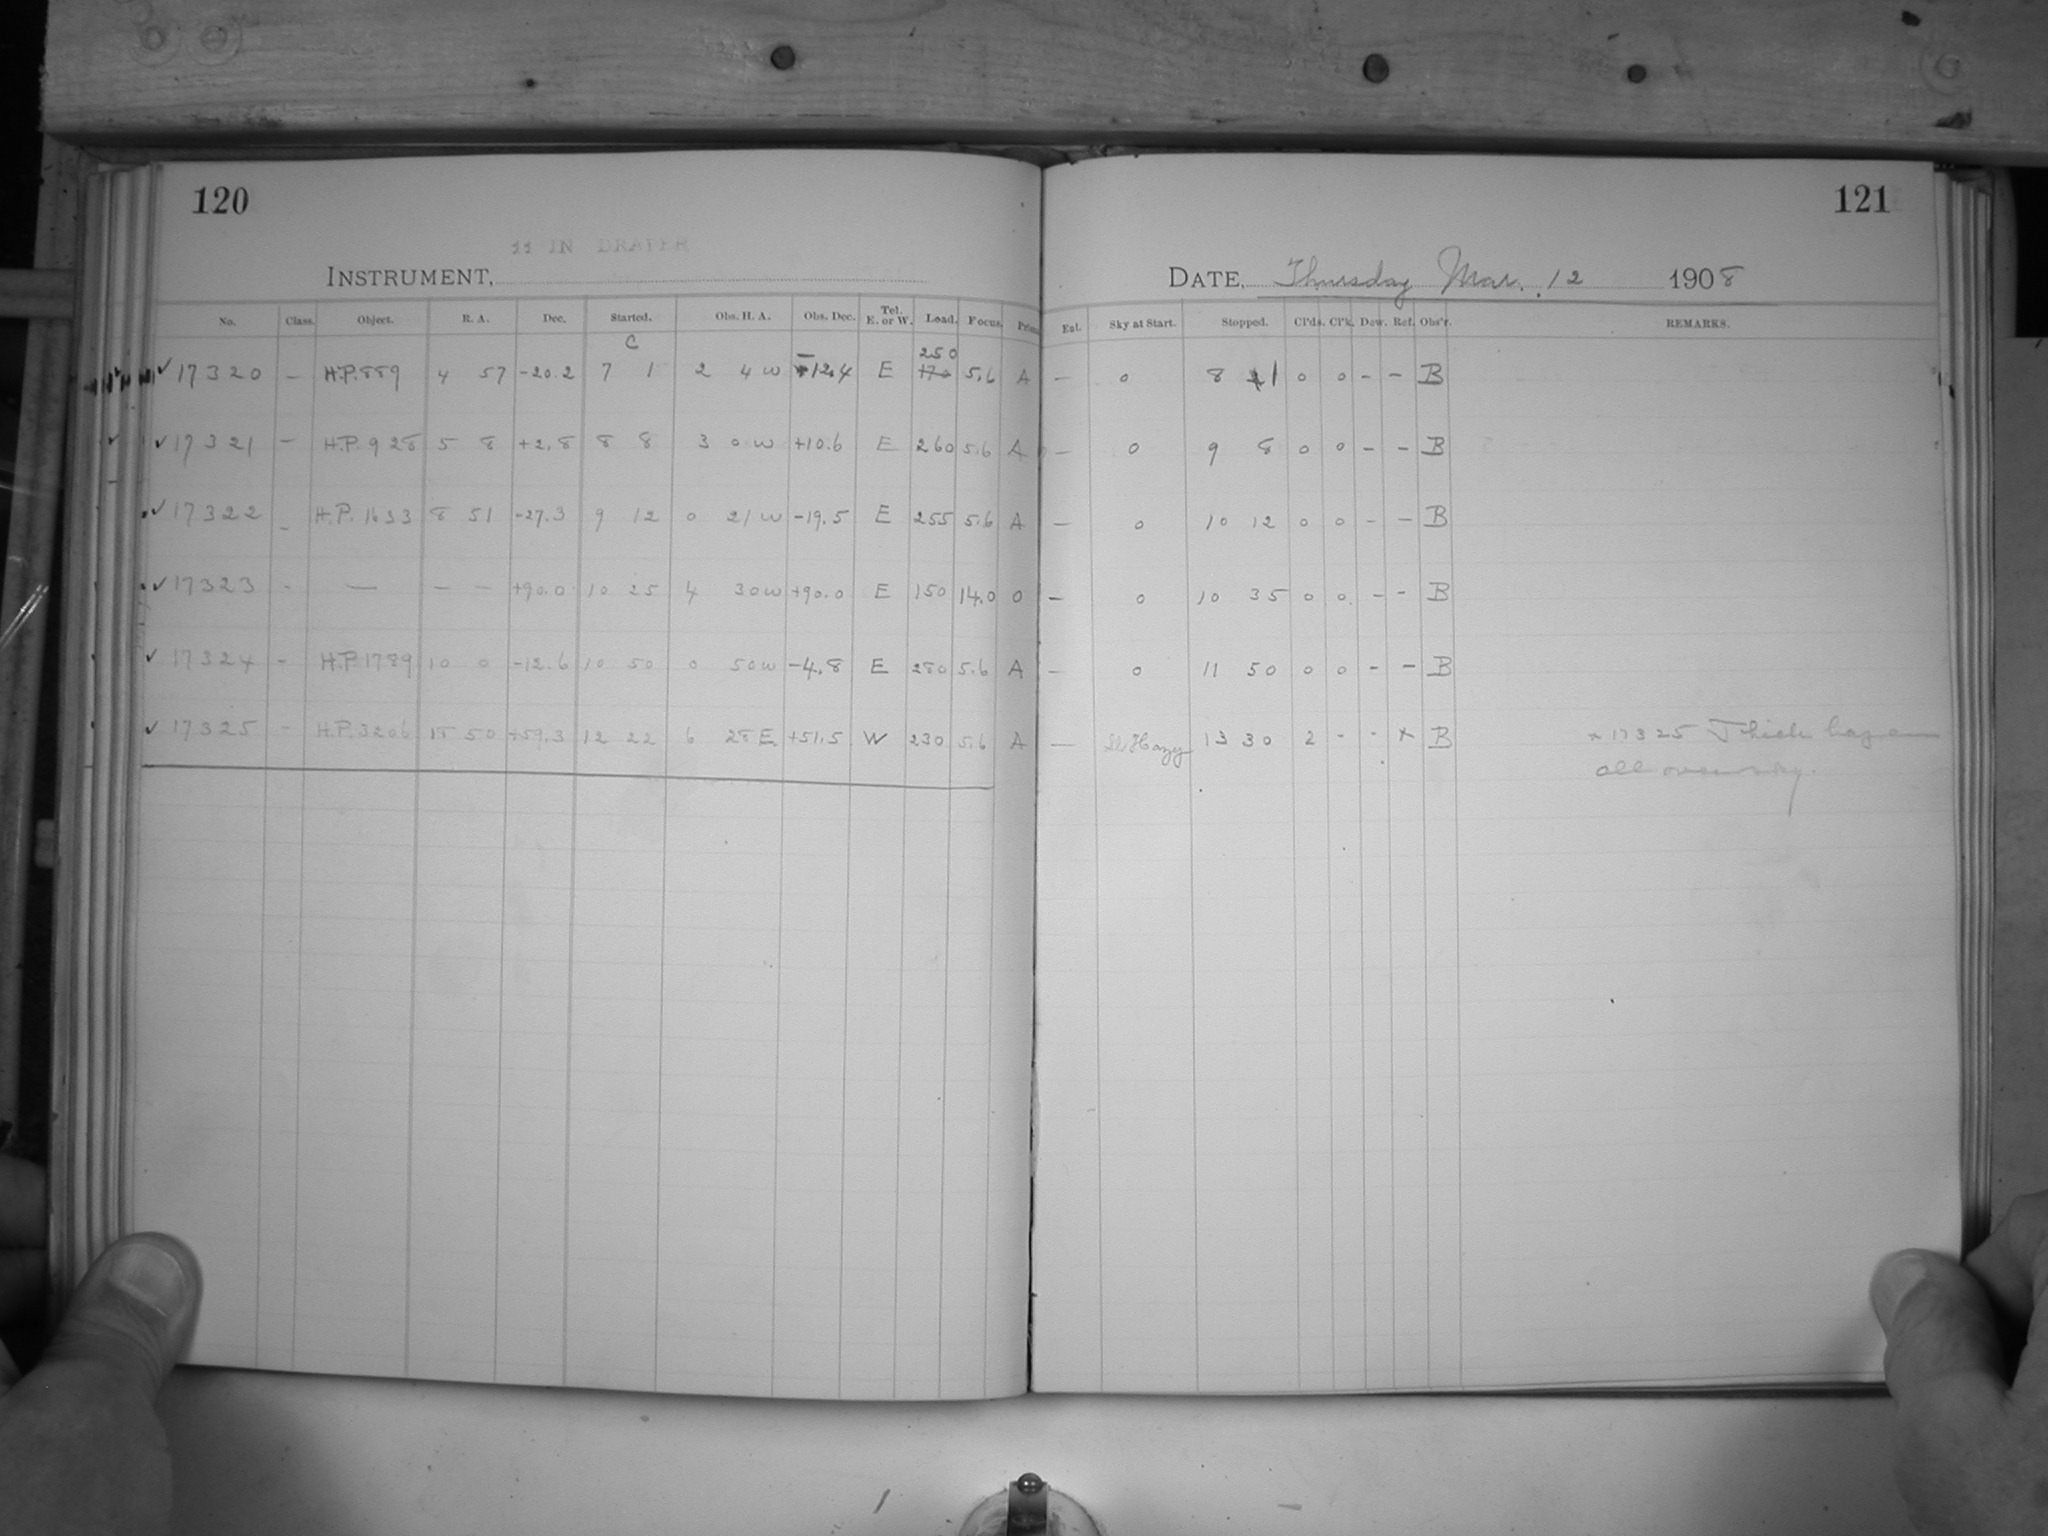 120
121
11 IN DRAPER
INSTRUMENT,
DATE, Thursday Mar. 12 1908
No. Class. Object. R. A. Dec. Started. Obs. H. A. Obs. Dec. Tel. E. or W. Load. Focus. Prism Ent. Sky at Start. Stopped. Cl'ds. Cl'k. Dew. Ref. Obs'r. REMARKS.
C
250
✓ 17320 – H.P. 889 4 57 -20.2 7 1 2 4 W -12.4 E 170 5.6 A – 0 8 1 0 0 – – B
✓ 17321 – H.P. 928 5 8 +2.8 8 8 3 0 W +10.6 E 260 5.6 A – 0 9 8 0 0 – – B
✓ 17322 – H.P. 1633 8 51 -27.3 9 12 0 21 W -19.5 E 255 5.6 A – 0 10 12 0 0 – – B
✓ 17323 – — – – +90.0 10 25 4 30 W +90.0 E 150 14.0 0 – 0 10 35 0 0 – – B
✓ 17324 – H.P. 1789 10 0 -12.6 10 50 0 50 W -4.8 E 280 5.6 A – 0 11 50 0 0 – – B
✓ 17325 – H.P. 3206 18 50 +59.3 12 22 6 28 E +51.5 W 230 5.6 A – Sl. Hazy 13 30 2 – – x B x 17325 Thick haze
all over sky.